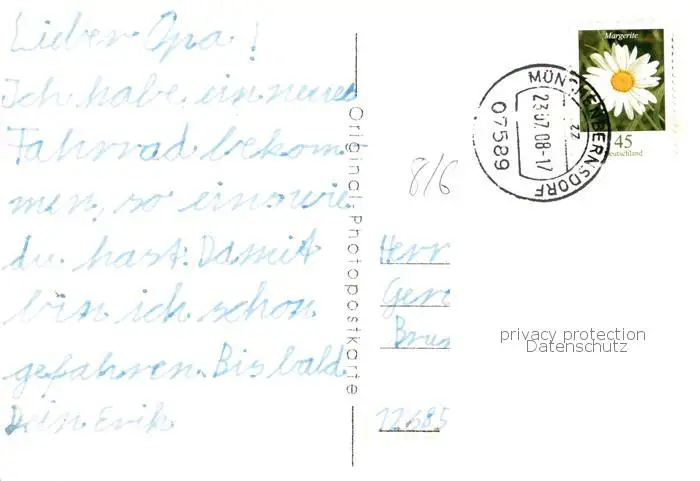 Lieber Opa!
Ich habe ein neues
Fahrrad bekom
men, so eins wie
du hast. Damit
bin ich schon
gefahren. Bis bald
Dein Erik
Original-Photopostkarte
8/6
Herr
Ger
Brus
12685
privacy protection
Datenschutz
MÜNCHENBERNSDORF
07589
23.07.08-17
zz
Margerite
45
Deutschland